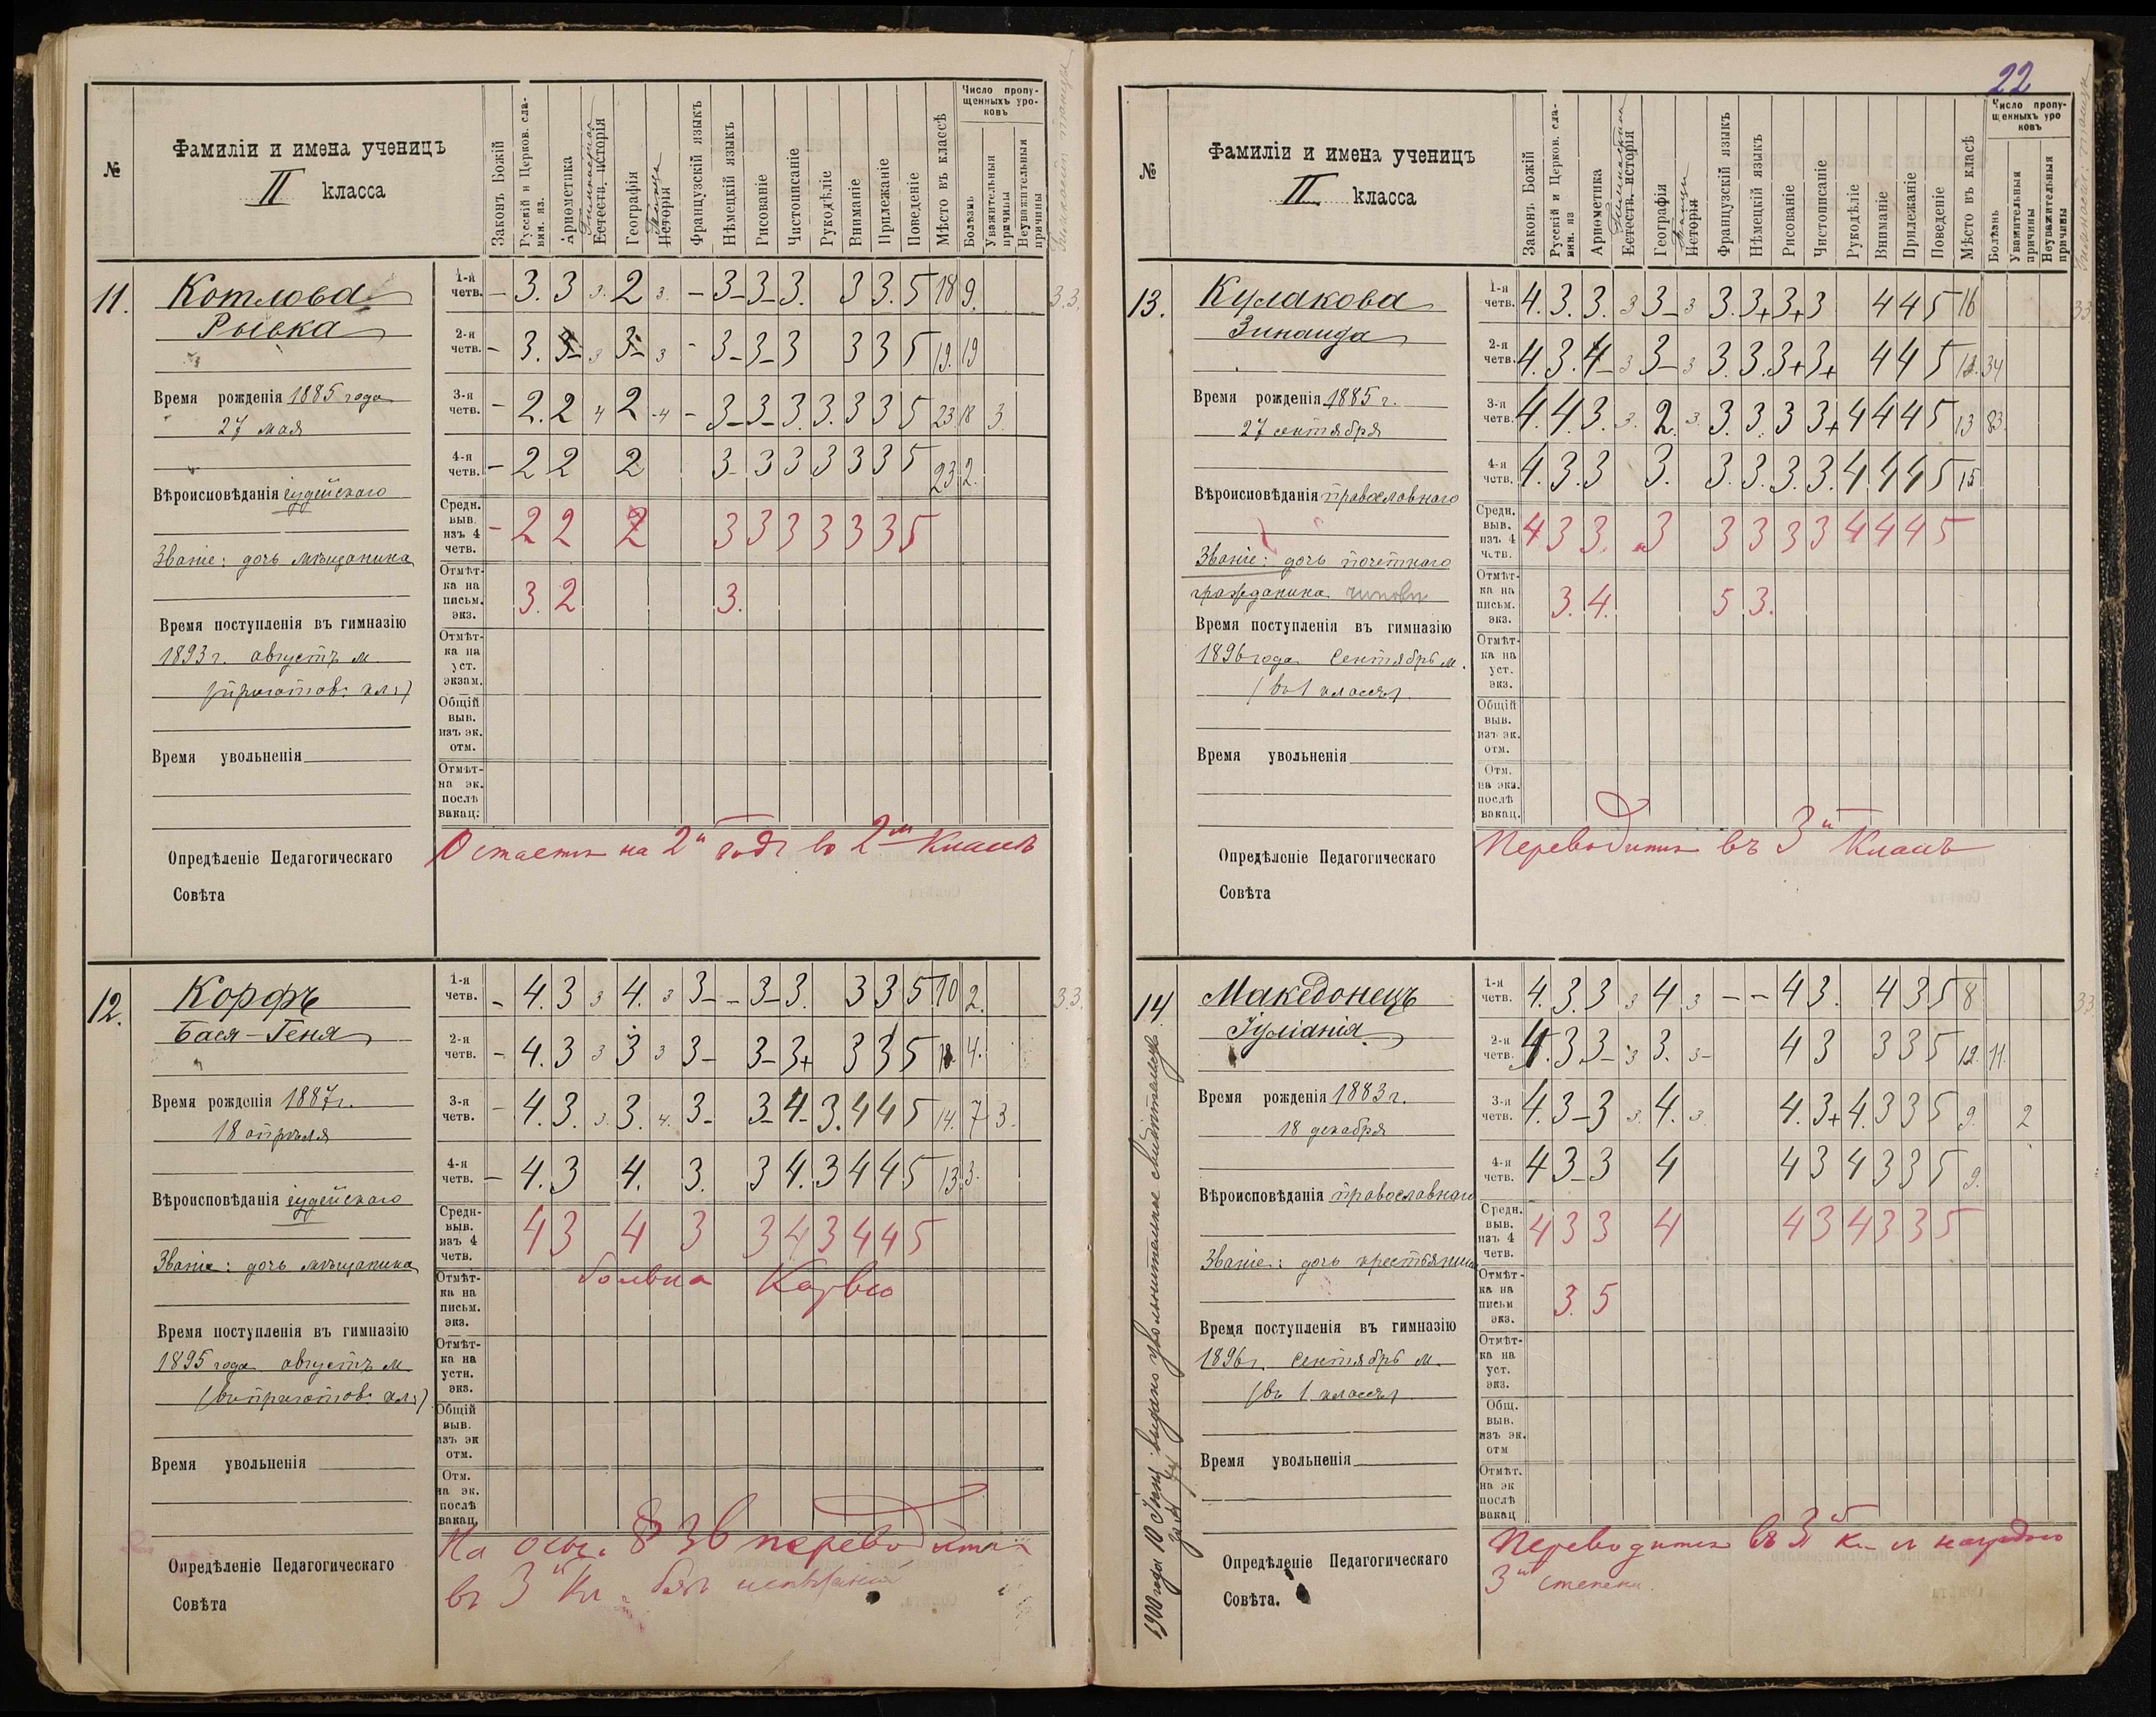 №
Фамиліи и имена ученицъ
II класса
Законъ Божій
Русскій и Церков. славян. яз.
Ариѳметика
Гимнастика
Естеств. исторія
Географія
Танцы
Исторія
Французскій языкъ
Нѣмецкій языкъ
Рисованіе
Чистописаніе
Рукодѣліе
Вниманіе
Прилежаніе
Поведеніе
Мѣсто въ классѣ
Число пропущенныхъ уроковъ
Болѣзнь
Уважительныя причины
Неуважительныя причины
11.
Котлова
Рывка
Время рожденія 1885 года
27 мая
Вѣроисповѣданія іудейскаго
Званіе: дочь мѣщанина
Время поступленія въ гимназію
1893 г. августъ м.
(приготов. кл.)
Время увольненія
Опредѣленіе Педагогическаго
Совѣта
1-я четв. – 3. 3 3. 2 3. – 3– 3– 3. 3 3. 5 18 9. 3.3.
2-я четв. – 3. 3– 3 3– 3 – 3– 3– 3 3 3 5 19. 19
3-я четв. – 2. 2 4 2 4 – 3– 3– 3. 3. 3 3 5 23. 18 3.
4-я четв. – 2 2 2 3– 3 3 3 3 3 5 23. 2.
Средн. выв. изъ 4 четв. – 2 2 2 3 3 3 3 3 3 5
Отмѣтка на письм. экз. 3. 2 3.
Отмѣтка на уст. экзам.
Общій выв. изъ эк. отм.
Отмѣт- на эк. послѣ вакац.
Остается на 2й годъ во 2м классѣ
12.
Корфъ
Бася-Геня
Время рожденія 1887 г.
18 апрѣля
Вѣроисповѣданія іудейскаго
Званіе: дочь мѣщанина
Время поступленія въ гимназію
1895 года августъ м.
(въ приготов. кл.)
Время увольненія
Опредѣленіе Педагогическаго
Совѣта
1-я четв. – 4. 3 3 4. 3 3– – 3– 3. 3 3 5 10 2. 3.3.
2-я четв. – 4. 3 3 3 3 3– 3– 3+ 3 3 5 4.
3-я четв. – 4. 3. 3. 3. 4. 3– 3– 4– 3. 4 4 5 14. 7 3.
4-я четв. – 4. 3 4. 3. 3 4. 3 4 4 5 13. 3.
Средн- выв. изъ 4 четв. 4 3 4 3 3 4 3 4 4 5
Отмѣтка на письм. экз. больна Корью
Отмѣтка на устн. экз.
Общій выв. изъ эк отм.
Отм. на эк. послѣ вакац.
На осн. § 36 переводится
въ 3й кл. безъ испытаній
22
№
Фамиліи и имена ученицъ
II класса
Законъ Божій
Русскій и Церков. славян. яз
Ариѳметика
Гимнастика
Естеств. исторія
Географія
Танцы
Исторія
Французскій языкъ
Нѣмецкій языкъ
Рисованіе
Чистописаніе
Рукодѣліе
Вниманіе
Прилежаніе
Поведеніе
Мѣсто въ класѣ
Число пропущенныхъ уроковъ
Болѣзнь
Уважительныя причины
Неуважительныя причины
13.
Кулакова
Зинаида
Время рожденія 1885 г.
27 сентября
Вѣроисповѣданія православнаго
Званіе: дочь почетнаго
гражданина
Время поступленія въ гимназію
1896 года сентябрь м.
(въ 1 классъ)
Время увольненія
Опредѣленіе Педагогическаго
Совѣта
1-я четв. 4. 3. 3. 3 3– 3 3. 3+ 3+ 3 4 4 5 16 33
2-я четв. 4. 3. 4– 3 3– 3 3. 3. 3+ 3+ 4 4 5 12. 34
3-я четв. 4. 4. 3. 3. 2. 3. 3. 3. 3 3+ 4 4 4 5 13 83.
4-я четв. 4. 3. 3 3. 3. 3. 3. 3. 4. 4 4 5 15
Средн. выв. изъ 4 четв. 4 3 3. 3 3 3 3 3 4 4 4 5
Отмѣтка на письм. экз. 3. 4. 5 3.
Отмѣтка на уст. экз.
Общій выв. изъ эк. отм.
Отм. на экз. послѣ вакац.
Переводится въ 3й классъ
14
Македонецъ
Іуліанія
Время рожденія 1883 г.
18 декабря
Вѣроисповѣданія православнаго
Званіе: дочь крестьянина
Время поступленія въ гимназію
1896 г. сентябрь м.
(въ 1 классъ)
Время увольненія
Опредѣленіе Педагогическаго
Совѣта.
1900 года 10 Іюня выдано увольнительное свидѣтельство
1-я четв. 4. 3. 3 3 4 3 – – 4 3. 4 3 5 8 33
2-я четв. 4. 3 3– 3 3. 3– 4 3 3 3 5 12. 11.
3-я четв. 4. 3– 3 3. 4. 3. 4. 3+ 4. 3 3 5 9. 2
4-я четв. 4 3– 3 4 4 3 4 3 3 5 9.
Средн. выв. изъ 4 четв. 4 3 3 4 4 3 4 3 3 5
Отмѣтка на письм экз. 3. 5
Отмѣтка на уст. экз.
Общ. выв. изъ эк. отм
Отмѣт. на эк послѣ вакац
Переводится въ 3й кл. и награда
3й степени.